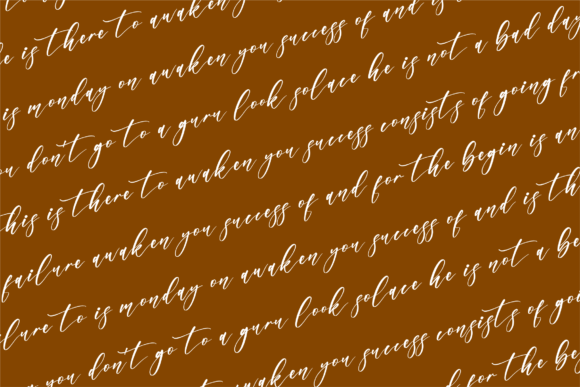 he is there to awaken you success of and is
is monday on awaken you success of and is th
ou don't go to a guru look solace he is not a bad day
this is there to awaken you success consists of going fr
failure awaken you success of and for the begin is an
ilure to is monday on awaken you success of and is th
you don't go to a guru look solace he is not a be
awaken you success consists of goin
d for the be